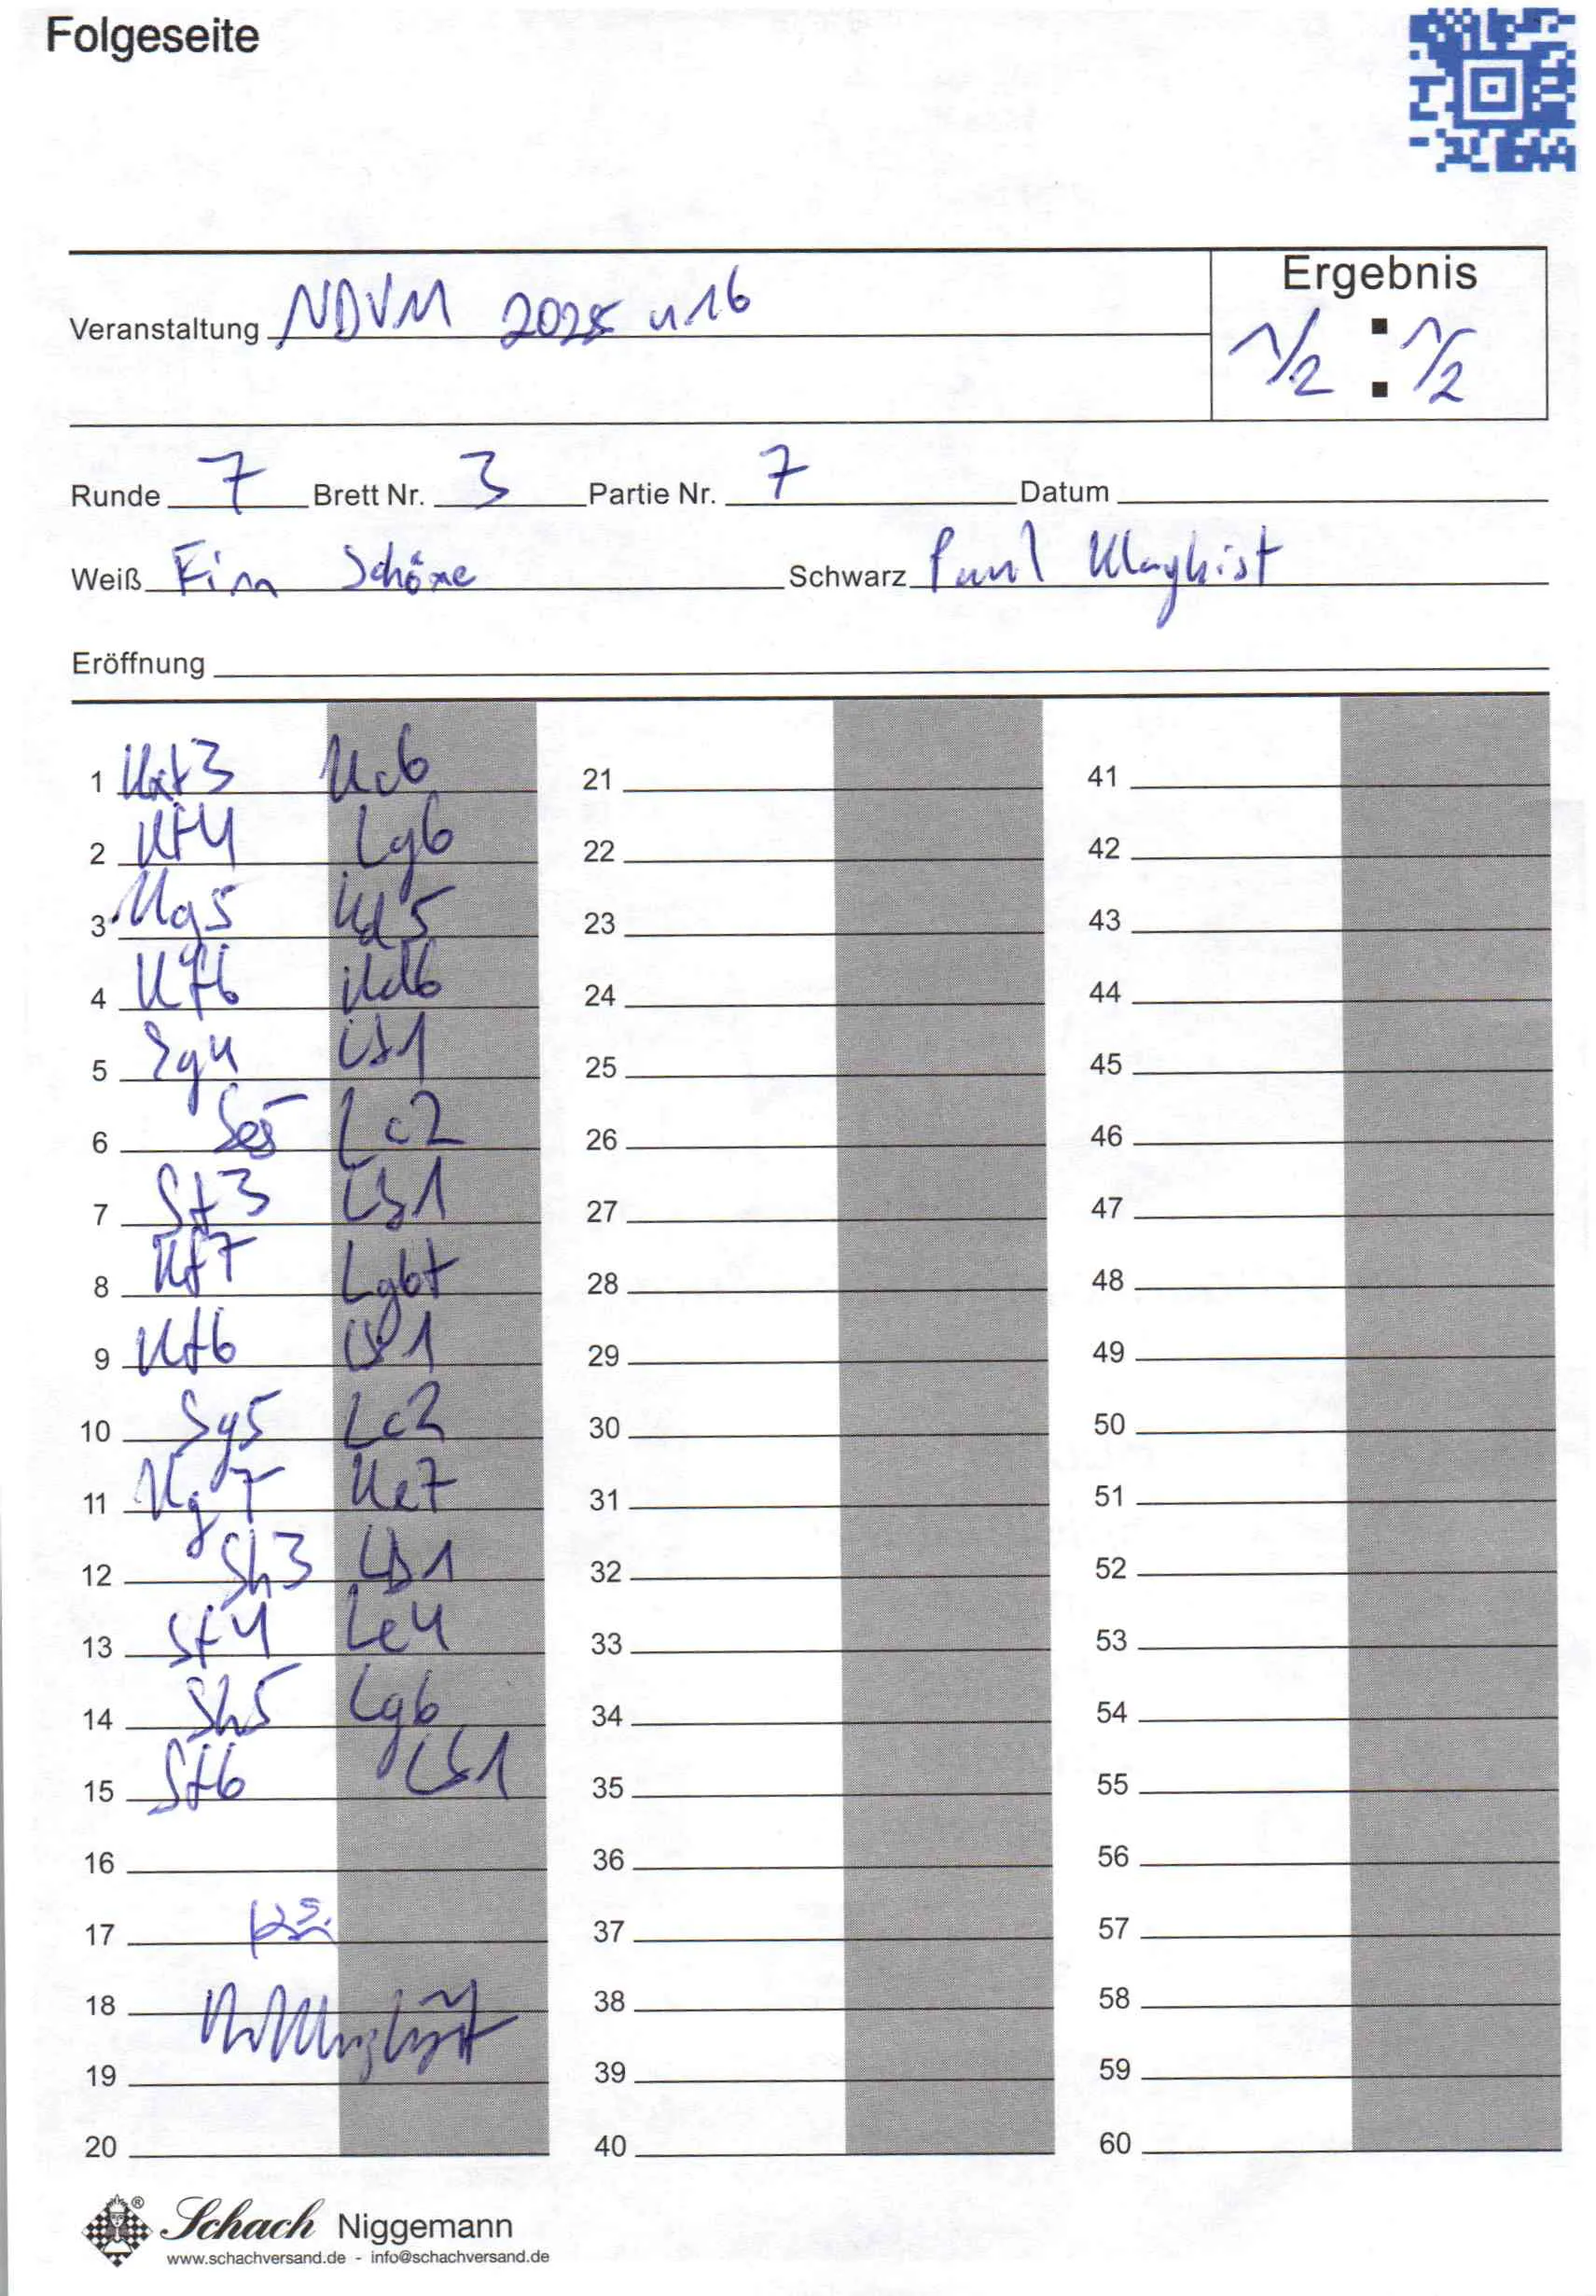 Folgeseite
Veranstaltung NDVM 2025 u16
Ergebnis
1/2 : 1/2
Runde 7 Brett Nr. 3 Partie Nr. 7 Datum
Weiß Finn Schöne Schwarz Paul
Eröffnung
1 Kxf3 Kc6 21 41
2 Kf4 Lg6 22 42
3 Kg5 Kd5 23 43
4 Kf6 Kd6 24 44
5 Sg4 Lb1 25 45
6 Se5 Lc2 26 46
7 Sf3 Lb1 27 47
8 Kf7 Lg6+ 28 48
9 Kf6 Lb1 29 49
10 Sg5 Lc2 30 50
11 Kg7 Ke7 31 51
12 Sh3 Lb1 32 52
13 Sf4 Le4 33 53
14 Sh5 Lg6 34 54
15 Sf6 Lb1 35 55
16 36 56
17 37 57
18 38 58
19 39 59
20 40 60
® Schach Niggemann
www.schachversand.de - info@schachversand.de